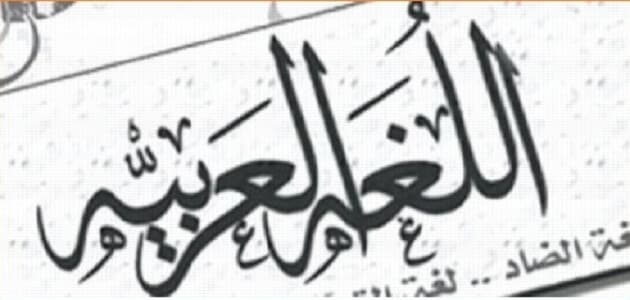 اللُغَه العَربيّه
غة الضاد .. لغة